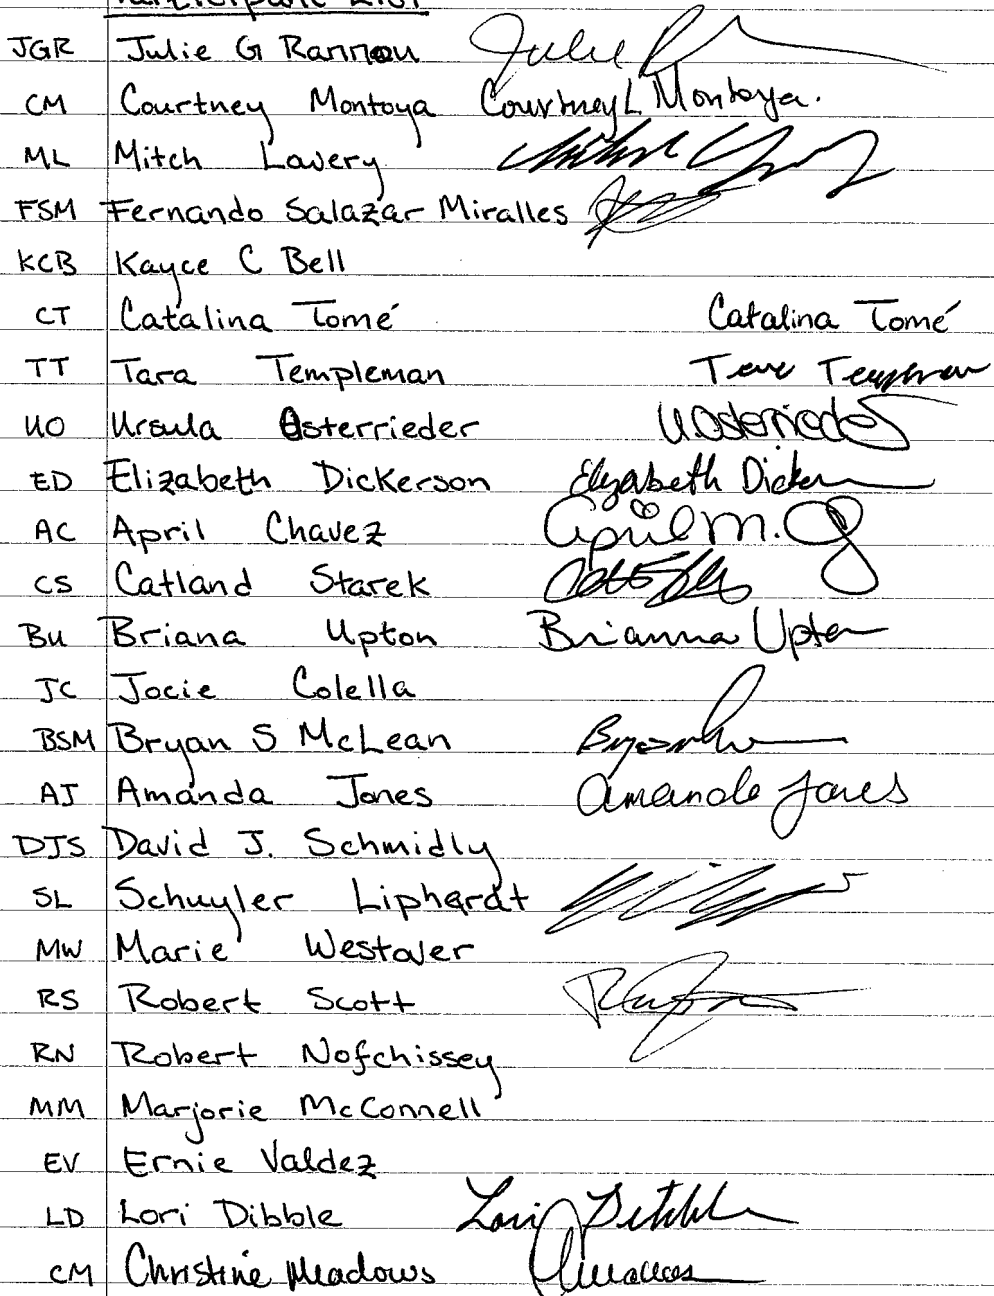 Participant List
JGR Julie G Rannou Julie R
CM Courtney Montoya Courtney L Montoya.
ML Mitch Lavery
FSM Fernando Salazar Miralles
KCB Kayce C Bell
CT Catalina Tomé Catalina Tomé
TT Tara Templeman
UO Ursula Osterrieder U.Osterrieder
ED Elizabeth Dickerson Elizabeth Dicker
AC April Chavez April M. C
CS Catland Starek
Bu Briana Upton Brianna Upton
JC Jocie Colella
BSM Bryan S McLean
AJ Amanda Jones Amanda Jones
DJS David J. Schmidly
SL Schuyler Liphardt
MW Marie Westover
RS Robert Scott
RN Robert Nofchissey
MM Marjorie McConnell
EV Ernie Valdez
LD Lori Dibble Lori Dibble
CM Christine Meadows